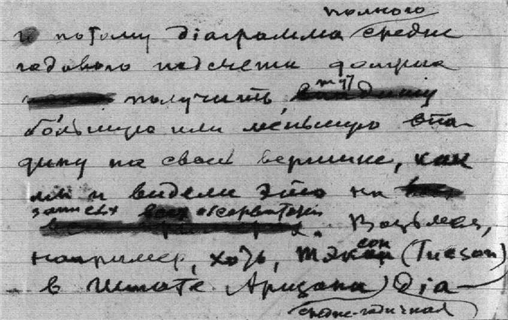 полного
и потому диаграмма средне
годового подсчета должна
получить ту
большую или меньшую впа-
дину на своей вершине, как
мы и видели это на
записях всех обсерваторій
Возьмем,
например, хоть, Тэксон (Tucson)
в Штате Аризона) Діа-
средне-годичная